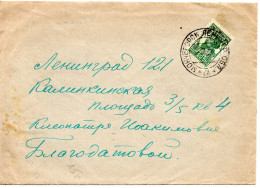 Ленинград 121
Калинкинская
площадь 3/5 кв 4
Клеопатре Иоакимовне
Благодатовой